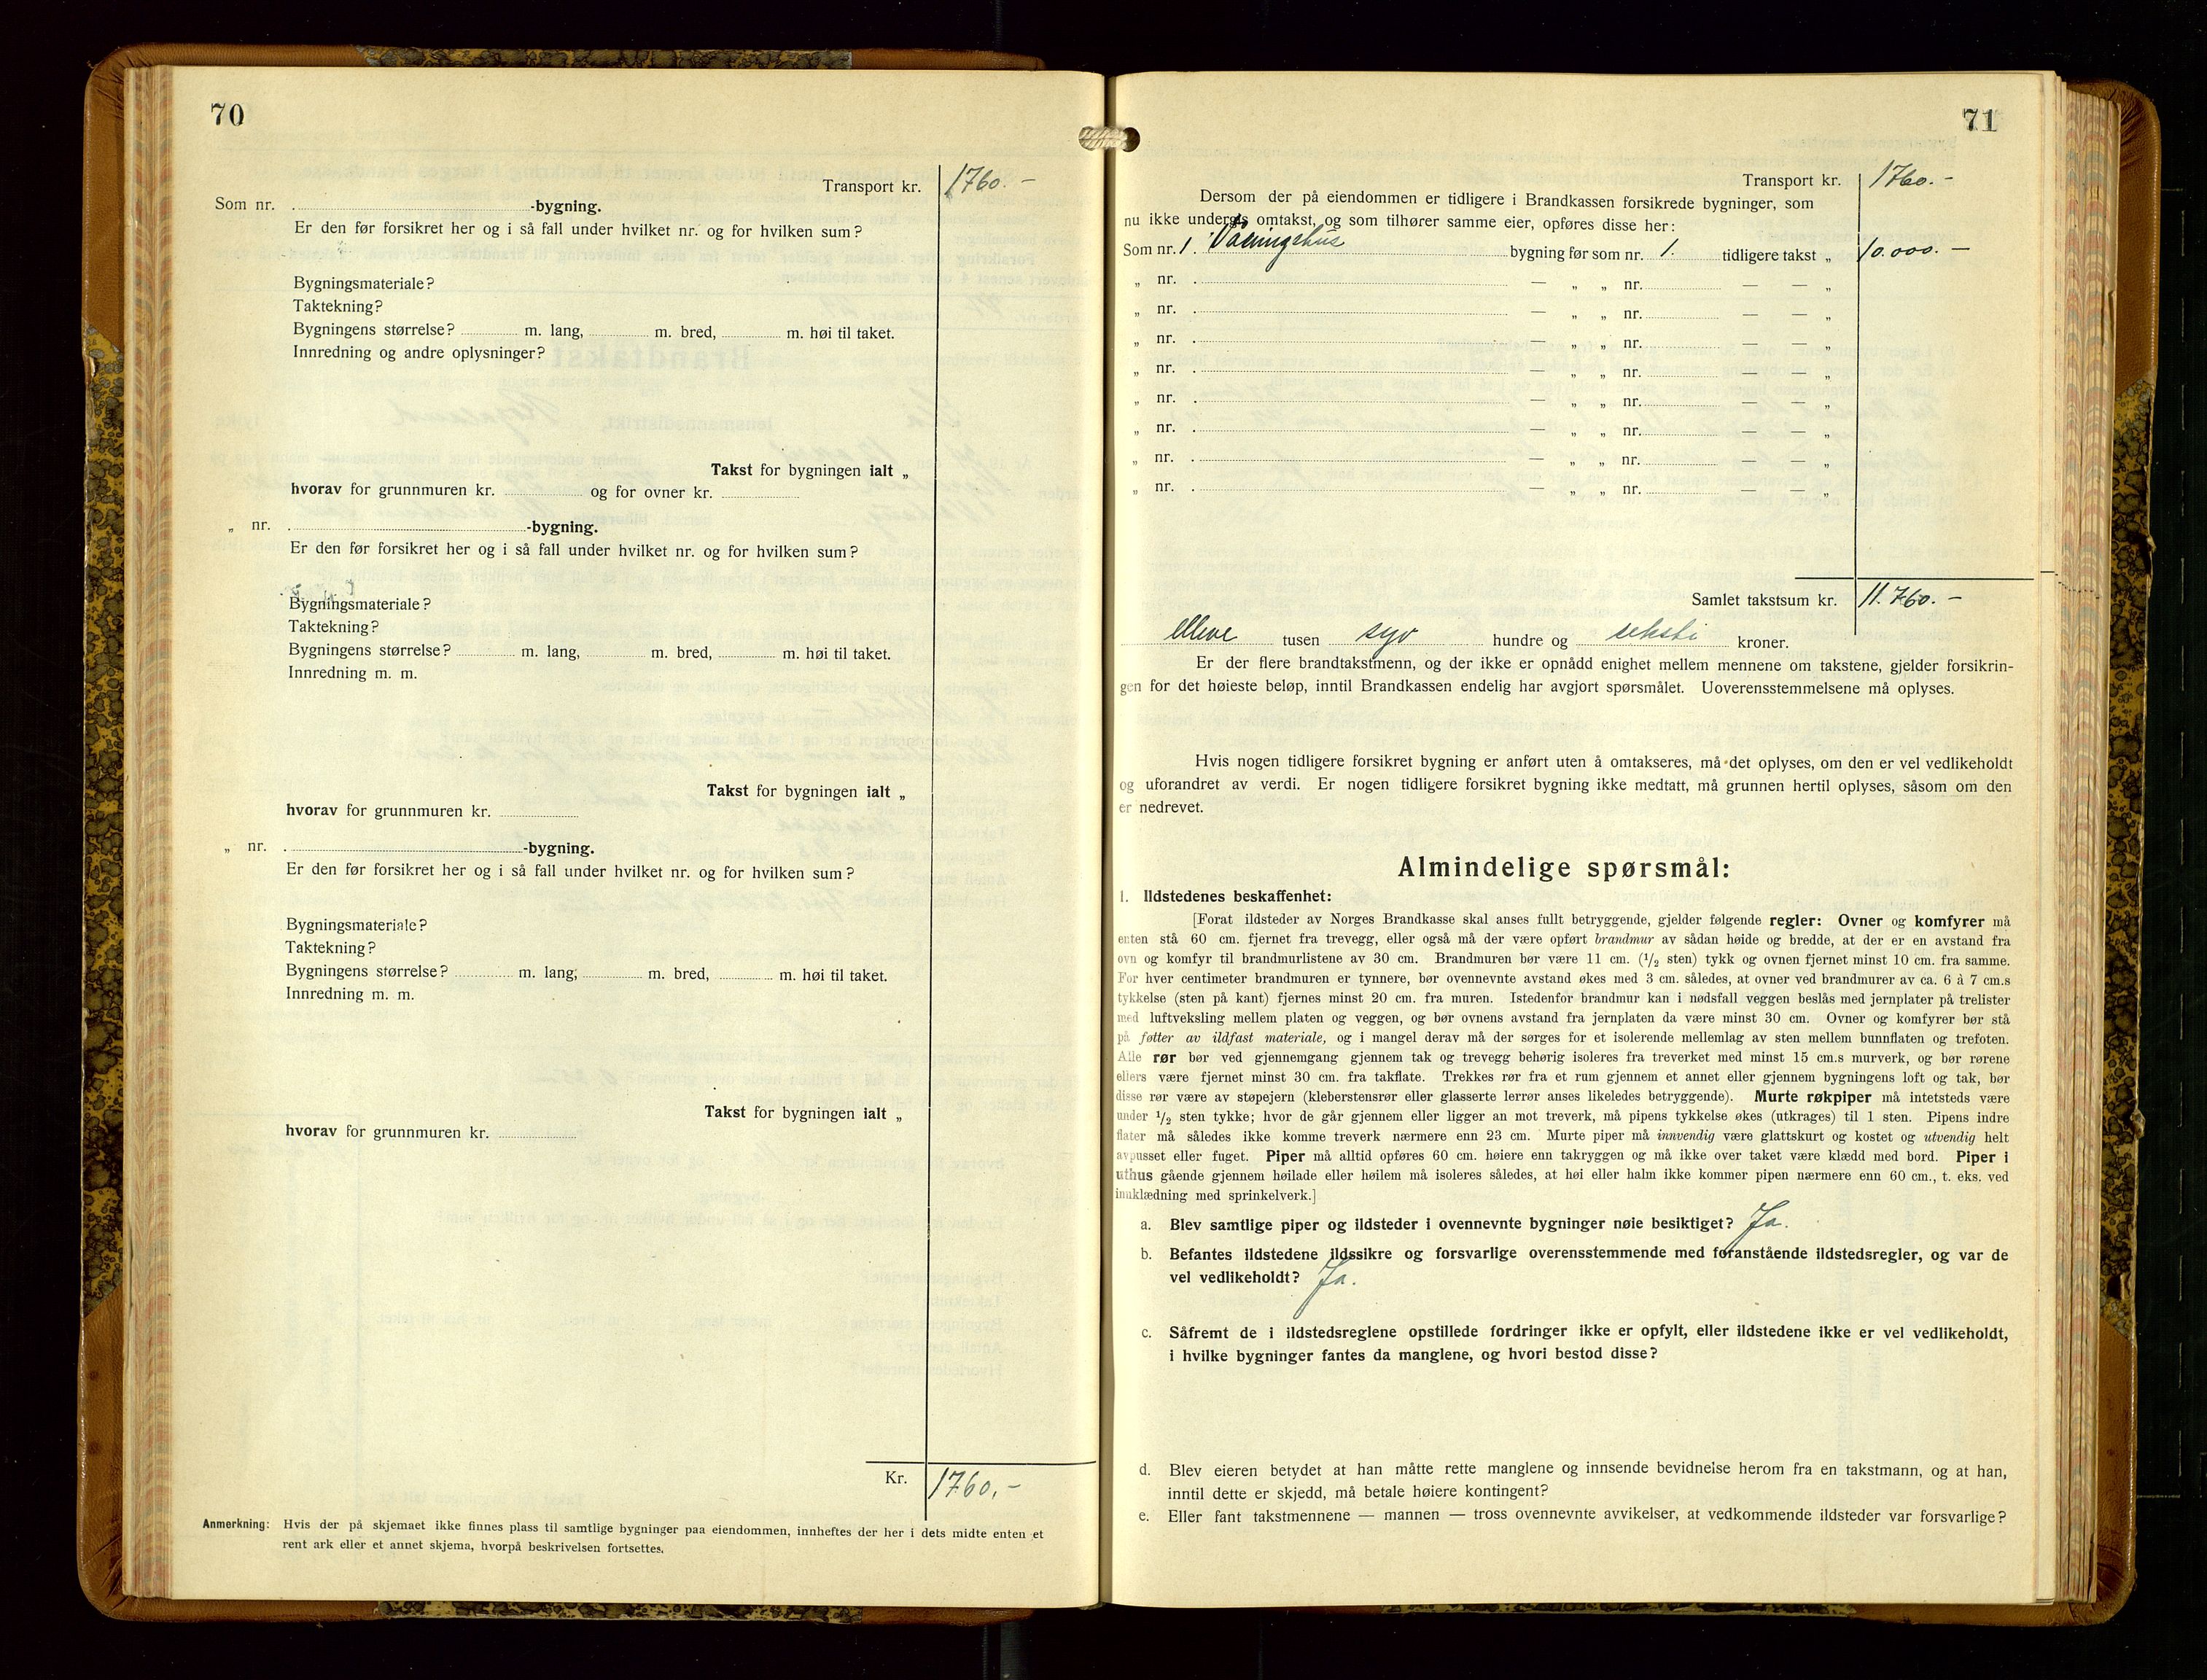 70
Transport kr. 1760.-
Som nr. -bygning.
Er den før forsikret her og i så fall under hvilket nr. og for hvilken sum?
Bygningsmateriale?
Taktekning?
Bygningens størrelse? m. lang, m. bred, m. høi til taket.
Innredning og andre oplysninger?
Takst for bygningen ialt „
hvorav for grunnmuren kr. og for ovner kr.
„ nr. -bygning.
Er den før forsikret her og i så fall under hvilket nr. og for hvilken sum?
Bygningsmateriale?
Taktekning?
Bygningens størrelse? m. lang, m. bred, m. høi til taket.
Innredning m. m.
Takst for bygningen ialt „
hvorav for grunnmuren kr.
„ nr. -bygning.
Er den før forsikret her og i så fall under hvilket nr. og for hvilken sum?
Bygningsmateriale?
Taktekning?
Bygningens størrelse? m. lang, m. bred, m. høi til taket.
Innredning m. m.
Takst for bygningen ialt „
hvorav for grunnmuren kr.
Kr. 1760,-
Anmerkning: Hvis der på skjemaet ikke finnes plass til samtlige bygninger paa eiendommen, innheftes der her i dets midte enten et
rent ark eller et annet skjema, hvorpå beskrivelsen fortsettes.
71
Transport kr. 1760.-
Dersom der på eiendommen er tidligere i Brandkassen forsikrede bygninger, som
nu ikke undergås omtakst, og som tilhører samme eier, opføres disse her:
Som nr. 1. Våningshus bygning før som nr. 1. tidligere takst „ 10.000.-
„ nr. — „ „ nr. — — „
„ nr. — „ „ nr. — — „
„ nr. — „ „ nr. — — „
„ nr. — „ „ nr. — — „
„ nr. — „ „ nr. — — „
„ nr. — „ „ nr. — — „
„ nr. — „ „ nr. — — „
„ nr. — „ „ nr. — — „
Samlet takstsum kr. 11.760.-
elleve tusen syv hundre og seksti kroner.
Er der flere brandtakstmenn, og der ikke er opnådd enighet mellem mennene om takstene, gjelder forsikrin-
gen for det høieste beløp, inntil Brandkassen endelig har avgjort spørsmålet. Uoverensstemmelsene må oplyses.
Hvis nogen tidligere forsikret bygning er anført uten å omtakseres, må det oplyses, om den er vel vedlikeholdt
og uforandret av verdi. Er nogen tidligere forsikret bygning ikke medtatt, må grunnen hertil oplyses, såsom om den
er nedrevet.
Almindelige spørsmål:
1. Ildstedenes beskaffenhet:
[Forat ildsteder av Norges Brandkasse skal anses fullt betryggende, gjelder følgende regler: Ovner og komfyrer må
enten stå 60 cm. fjernet fra trevegg, eller også må der være opført brandmur av sådan høide og bredde, at der er en avstand fra
ovn og komfyr til brandmurlistene av 30 cm. Brandmuren bør være 11 cm. (1/2 sten) tykk og ovnen fjernet minst 10 cm. fra samme.
For hver centimeter brandmuren er tynnere, bør ovennevnte avstand økes med 3 cm. således, at ovner ved brandmurer av ca. 6 à 7 cm.s
tykkelse (sten på kant) fjernes minst 20 cm. fra muren. Istedenfor brandmur kan i nødsfall veggen beslås med jernplater på trelister
med luftveksling mellem platen og veggen, og bør ovnens avstand fra jernplaten da være minst 30 cm. Ovner og komfyrer bør stå
på føtter av ildfast materiale, og i mangel derav må der sørges for et isolerende mellemlag av sten mellem bunnflaten og trefoten.
Alle rør bør ved gjennemgang gjennem tak og trevegg behørig isoleres fra treverket med minst 15 cm.s murverk, og bør rørene
ellers være fjernet minst 30 cm. fra takflate. Trekkes rør fra et rum gjennem et annet eller gjennem bygningens loft og tak, bør
disse rør være av støpejern (kleberstensrør eller glasserte lerrør anses likeledes betryggende). Murte røkpiper må intetsteds være
under 1/2 sten tykke; hvor de går gjennem eller ligger an mot treverk, må pipens tykkelse økes (utkrages) til 1 sten. Pipens indre
flater må således ikke komme treverk nærmere enn 23 cm. Murte piper må innvendig være glattskurt og kostet og utvendig helt
avpusset eller fuget. Piper må alltid opføres 60 cm. høiere enn takryggen og må ikke over taket være klædd med bord. Piper i
uthus gående gjennem høilade eller høilem må isoleres således, at høi eller halm ikke kommer pipen nærmere enn 60 cm., t. eks. ved
innklædning med sprinkelverk.]
a. Blev samtlige piper og ildsteder i ovennevnte bygninger nøie besiktiget? Ja.
b. Befantes ildstedene ildssikre og forsvarlige overensstemmende med foranstående ildstedsregler, og var de
vel vedlikeholdt? Ja.
c. Såfremt de i ildstedsreglene opstillede fordringer ikke er opfylt, eller ildstedene ikke er vel vedlikeholdt,
i hvilke bygninger fantes da manglene, og hvori bestod disse?
d. Blev eieren betydet at han måtte rette manglene og innsende bevidnelse herom fra en takstmann, og at han,
inntil dette er skjedd, må betale høiere kontingent?
e. Eller fant takstmennene — mannen — tross ovennevnte avvikelser, at vedkommende ildsteder var forsvarlige?